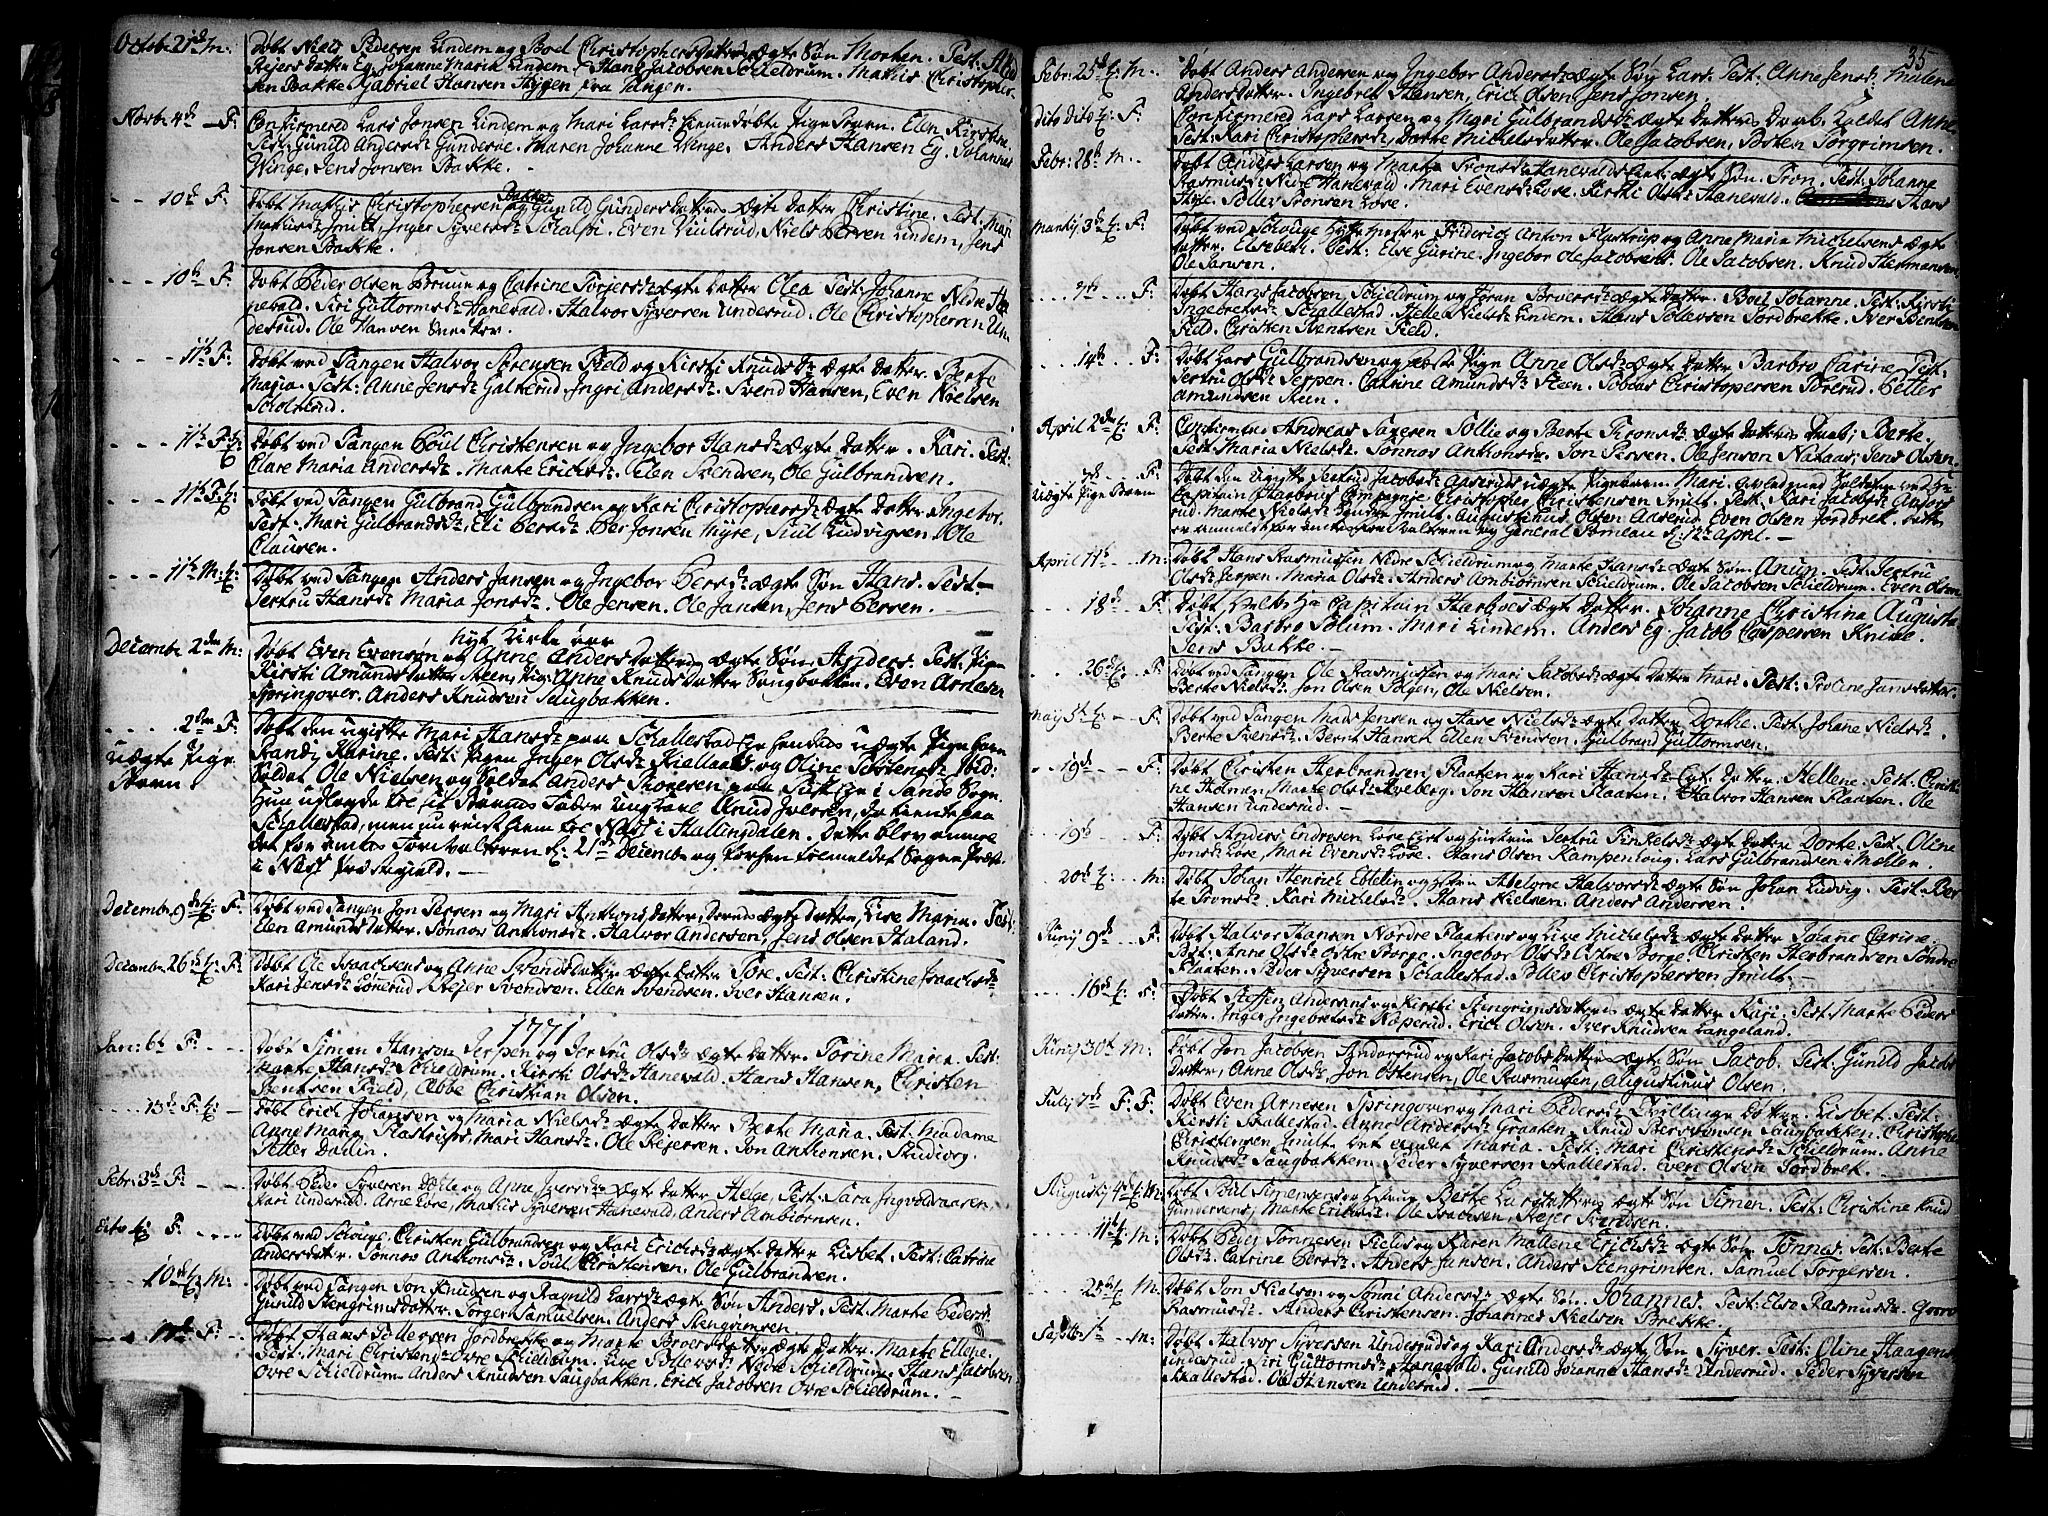 Octobr 21de M: Døbt Niels Pedersen Lindem og Boel Christophersdatters ægte Søn Morten. Test:
Rejersdatter Eg, Johanne Maria Lindem, Hans Jacobsen Schieldrum. Mathis Christopher-
sen Bakke. Gabriel Hansen Thygen fra Tangen.
Novbr 4de F: Confirmered Lars Jonsen Lindem og Mari Larsd: hiemmedøbte Pige Barn. Elen Kirstine.
Test: Gunild Andersd: Gunderøe. Maren Johanne Winge, Anders Hansen Eg. Johannes
Winge, Jens Jonsen Bakke.
10de F: Døbt Mathis Christophersen Bakke og Gunild Gundersdatters Ægte Datter Christine. Test: Mari
Mathisd: Smit, Inger Syversd: Schalp. Even Huilsrud, Niels Persen Lindem, Jens
Jonsen Bakke.
10de F: Døbt Peder Olsen Bruun og Catrine Torjersd: ægte Datter Olea Test: Johanne Nedre Ha-
nevald. Siri Guttormsd: Hanevald. Halvor Syversen Underrud. Ole Christophersen Un-
derrud. Ole Hansen
11te F: Døbt ved Tangen Halvor Sørensen Field og Kirsti Knudsd: ægte datter. Berte
Maria. Test: Anne Jensd: Galterud. Ingri Andersd: Svend Hansen, Even Nielsen
Scholsrud.
11te F: Døbt ved Tangen Poul Christensen og Ingebor Hansd: Ægte datter. Kari. Test:
Clare Maria Andersd: Marte Erichsd: Ellen Svendsen, Ole Gulbrandsen.
11te F: Døbt ved Tangen Gulbrand Gulbrandsen og Kari Christophersd: Ægte datter Ingebor.
Test: Mari Gulbrandsd: Eli Persd: Per Jonsen Myre, Siul Ludvigsen. Ole
Clausen.
11te M: Døbt ved Tangen Anders Jansen og Ingebor Persd: Ægte Søn Hans. Test:
Jertru Hansd: Maria Jonsd: Ole Jensen. Ole Jansen, Jens Persen.
Nyt Kirke aar
Decembr 2den M: Døbt Even Evensøn og Anne Andersdatters ægte Søn Anders. Test: Pigen
Kirsti Amundsdatter Steen, Pig: Anne Knudsdatter Saugbakken. Even Arnesen
Springover. Anders Knudsen Saugbakken.
2den F: Døbt den ugifte Mari Hansd: paa Schallestad
uægte Pige Barn
Randi Karine. Test: Pigen Inger Olsd: Kiellaas. og Oline
Soldat Ole Nielsen og Soldat Anders Thoresen i Sande Sogn.
Hun udlagde til sit Barns Fader Ungkarl Knud Iversen, da tiente paa
Schallestad, men nu reist hiem til Næss i Hallingdalen. Dette blev anmel-
det for Amtets Forvalteren d: 21de Decembr og
i Næss Præstegield.
Decembr 9de F: Døbt ved Tangen Jon Persen og Mari Anthonisdatters ægte Datter, Live Marie. Test:
Elen Amundsdatter. Sønnov Anthonsd: Halvor Andersen, Jens Olsen Haland.
Decembr 26de F: Døbt Ole Isaachsens og Anne Svendsdatters ægte Datter Tore. Test: Christine Isaachsd:
Kari Jensd: Lønerud, Rejer Svendsen. Ellen Svendsen. Iver Hansen.
1771
Jan: 6te F: Døbt Simen Hansøn Jerpen og Jertru Olsd: ægte datter. Torine Maria. Test:
Marte Hansd: Schieldrum. Kirsti Olsd: Hanevald. Hans Hansen, Christen
Bentsen Field, Ebbe Christian Olsen.
13de F: Døbt Erich Johansen og Maria Nielsd: ægte datter Berte Maria. Test: Madame
Anne Maria Flastrups, Mari Hansd: Ole Rejersen. Jon Anthonsen.
Petter Dadin.
Febr: 3de F: Døbt Peder Syversen Døhle og Anne Iversd: ægte datter Helge. Test: Sara Ingvoldaasen.
Kari Underrud. Arne Løre, Mathis Syversen Hanevald, Anders Ambiørnsen.
F: Døbt ved Schouge Christen Gulbrandsen og Kari Erichsd: ægte datter Lisbet. Test: Catrine
Andersdatter. Sønnov Anthonsd: Poul Christensen. Ole Gulbrandsen.
10de M: Døbt ved Tangen Jon Knudsen og Ragnild Larsd: ægte Søn Anders. Test: Marte Pedersd:
Gunild Stengrimsdatter. Torger Samuelsen. Anders Stengrimsen
F: Døbt Hans Tollefsen Jordbrekke og Marte Broersdatters ægte datter. Marte Ellene.
Test: Mari Christensd: Øvre Schieldrum. Live Tollevsd: Nedre Schieldrum. Hans Jacobsen
Øvre Schieldrum. Anders Knudsen Saugbakken. Erich Jacobsen Øvre Schieldrum.
35
Febr: 25de M. Døbt Anders Andersen og Ingebor Andersd: ægte Søn Lars. Test: Anne Jensd: Malene
Andersdatter. Ingebret Hansen, Erich Olsen, Jens Jonsen.
dito dito F: Confirmered Lars Larsen og Mari Gulbrandsd: ægte datters Daab, kaldet Anne
Test: Kari Christophersd: Dorte Michelsdatter. Ole Jacobsen, Torgrimsen.
Febr: 28de M. Døbt Anders Larsen og Marte Tronsd: Hanevalds ægte Søn. Tron. Test: Johanne
Rasmusd: Nedre Hanevald. Mari Evensd: Løre. Kirsti Olsd: Hanevald. Hans
Tollev Tronsen Løre.
Martij 3de F: Døbt ved Schouge Friderich Anton Flastrup og Anne Maria Michelsens ægte
datter. Elsebeth. Test: Else Gurine. Ingebor Ole Jacobsens. Ole Jacobsen. Knud Hermansen
Ole Jansen.
F: Døbt Hans Jacobsen Schieldrum og Jøran Broersd: ægte datter. Boel Johanne. Test: Kirsti
Ingebretsd: Schallestad. Helle Nielsd: Lindem. Hans Tollevsen Jordbrekke. Iver Bentsen
Field. Christen Bentsen Field.
14de F: Døbt Lars Gulbrandsen og Anne Olsd: Ægte datter Barbro Carine Test:
Jertru Olsd: Jerpen. Catrine Amundsd: Steen. Tobias Christophersen Torerud. Petter
Amundsen Steen.
April 2den F: Confirmered Andreas Tagesen Tollie og Berte Tronsd: ægte datters Daab; Berte.
Test: Maria Nielsd: Sønnov Anthonsd: Jon Persen. Ole Jensen Nataas, Jens Olsen.
7de F: Døbt den ugifte Jertrud Jacobsd: Aaseruds uægte Pigebarn. Mari.
uægte Pige Barn
Capitain Harboes Compagnie Christopher Christensen Smit. Test: Kari Jacobsd: Aase-
rud. Marte Nielsd: Smit. Augustinus Olsen Aaserud. Even Olsen Jordbrek.
12te April.
April 11te M: Døbt Hans Rasmussen Nedre Schieldrum og Marte Hansd: ægte Søn. Anun. Test: Jertru
Olsd: Jerpen. Maria Olsd: Anders Ambiørnsen Schieldrum. Ole Jacobsen Schieldrum. Even Olsen
18de F: Døbt Capitain Harboes ægte Datter. Johanne Christina Augusta
Test: Barbro Solum. Mari Lindem. Anders Eg. Jacob Caspersen Knive.
Jens Bakke.
26de F: Døbt ved Tangen Ole Rasmussen og Mari Jacobsd: ægte datter Mari. Test: Troline Jansdatter.
Berte Nielsd: Jon Olsen, Ole Nielsen.
May 5te F: Døbt ved Tangen Mads Jensen og Aase Nielsd: ægte datter Dorthe. Test: Johane Nielsd:
Berte Svensd: Bernt Hansen Ellen Svendsen. Gulbrand Guttormsen.
19de F: Døbt Christen Herbrandsen Flaaten og Kari Hansd: ægt. datter. Hellene. Test: Christi-
ne Holmen. Marte Olsd: Aveberg. Jon Hansen Flaaten. Halvor Hansen Flaaten. Ole
Hansen Underrud.
19de F: Døbt Anders Endresen Løre og Jertru Tinkelsd: ægte datter Dorte. Test. Oline
Jonsd: Løre, Mari Evensd: Løre. Hans Olsen Kampenhoug. Lars Gulbrandsen i Møllen.
20de M: Døbt Johan Henrich Ebbelin og Abelone Halvorsd: ægte Søn Johan Ludvig. Test: Ber-
te Tronsd: Kari Michelsd: Hans Nielsen. Anders Andersen.
Junij 9de F: Døbt Halvor Hansen Nordre Flaatens og Live Michelsd: ægte datter Johanne Carine.
Test: Anne Olsd: Østre Borge. Ingebor Olsd: Østre Borge. Christen Herbrandsen Søndre
Flaaten. Peder Syversen Schallestad. Tollev Christophersen Smit.
16de Døbt Steffen Andersens og Kirsti Stengrimsdatters ægte datter Kari. Test: Marte Peders
datter. Inger Ingebretsd: Noperud. Erich Olsen. Iver Knudsen Langeland.
Junij 30te M: Døbt Jon Jacobsen Andorsrud og Kari Jacobsdatters ægte Søn Jacob. Test: Gunild Jacobs
datter, Anne Olsd: Jon Ostensen, Ole Rasmussen, Augustinus Olsen.
July 7de F: F: Døbt Even Arnesen Springover og Mari Pedersd: Tvillinge døtter. Lisbet. Test:
Kirsti Skallestad. Anne Andersd: Graaten. Knud Saugbakken. Christophe
Christensen Smit. Det andet Maria. Test: Mari Christensd: Schieldrum. Anne
Knudsd: Saugbakken. Peder Syversen Skallestad. Even Olsen Jordbrek.
Augusty 4de M: Døbt Poul Simensens og Berte Larsdatters ægte Søn Simen. Test: Christine Knud
Gundersens, Marte Erichsd: Ole Isachsen, Rejer Svendsen.
11te M: Døbt Peder Tønnesen Fields og Karen Mallene Erichsd: ægte Søn Tønnes. Test: Berte
Olsd: Catrine Persd: Anders Jansen. Anders Stengrimsen. Samuel Torgersen.
25de M: Døbt Jon Nielsen og Sønni Andersd: ægte Søn. Johannes. Test: Else Rasmusd:
Rasmusd: Anders Christensen. Johannes Nielsen Brekke.
M: Døbt Halvor Syversen Underrud og Kari Andersd: ægte Søn Syver. Test: Oline Haagens
Underrud. Siri Guttormsd: Hanevald. Gunild Johanne Hansd: Underrud. Peder Syversen
Skallestad. Ole Hansen Underrud.